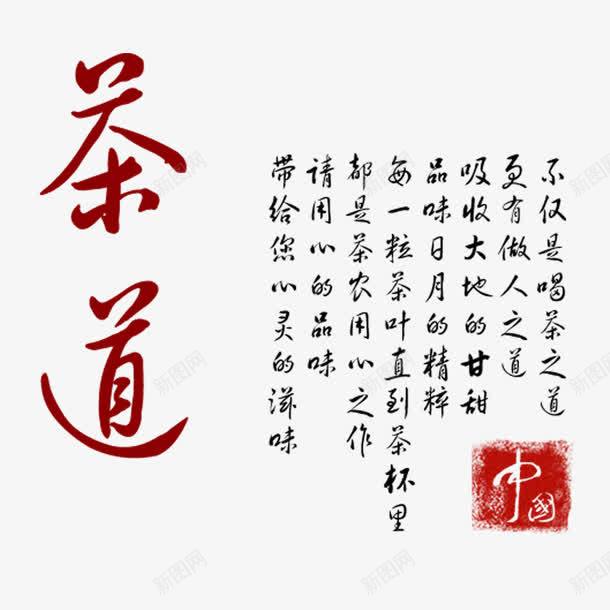 茶道
不仅是喝茶之道
更有做人之道
吸收大地的甘甜
品味日月的精粹
每一粒茶叶直到茶杯里
都是茶农用心之作
请用心的品味
带给您心灵的滋味
中國
新图网